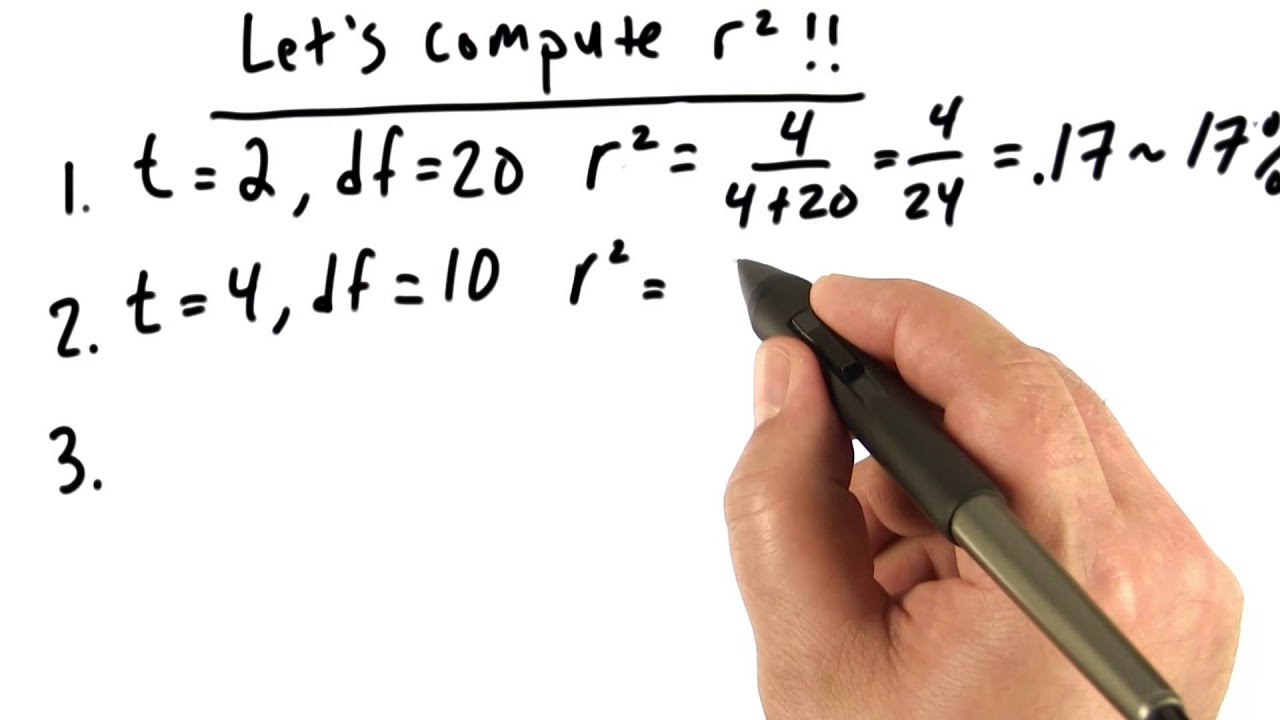 Let's compute r²!!
1. t = 2, df = 20 r² = 4/4+20 = 4/24 = .17 ~ 17%
2. t = 4, df = 10 r² =
3.